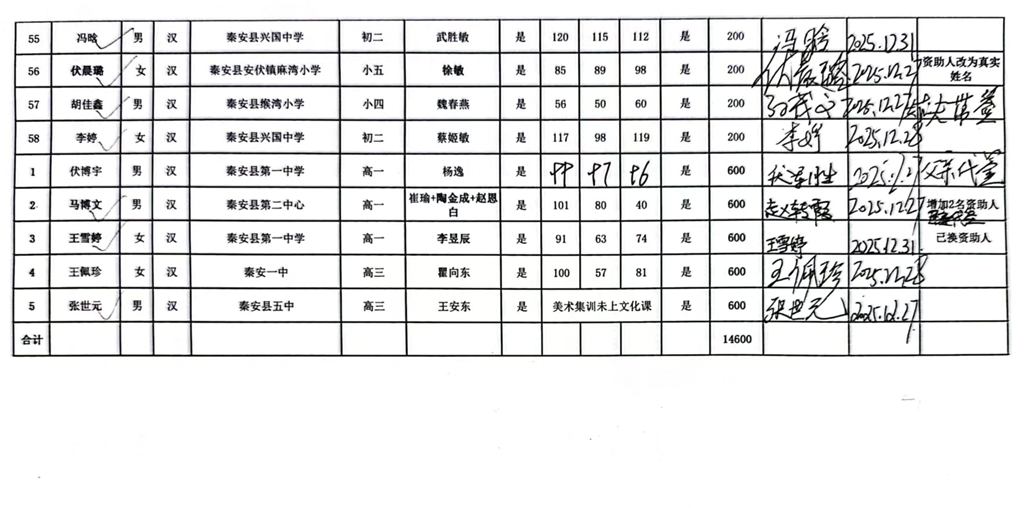 55 冯晗 男 汉 秦安县兴国中学 初二 武胜敏 是 120 115 112 是 200 冯晗 2025.12.31
56 伏晨璐 女 汉 秦安县安伏镇麻湾小学 小五 徐敏 是 85 89 98 是 200 伏晨璐 2025.12.27 资助人改为真实姓名
57 胡佳鑫 男 汉 秦安县缑湾小学 小四 魏春燕 是 56 50 60 是 200 2025.12.27
58 李婷 女 汉 秦安县兴国中学 初二 蔡姬敏 是 117 98 119 是 200 李婷 2025.12.28
1 伏博宇 男 汉 秦安县第一中学 高一 杨逸 是 是 600 2025.12.27 父亲代签
2 马博文 男 汉 秦安县第二中心 高一 崔瑜+陶金成+赵恩白 是 101 80 40 是 600 赵转霞 2025.12.27 增加2名资助人
3 王雪婷 女 汉 秦安县第一中学 高一 李昱辰 是 91 63 74 是 600 王雪婷 2025.12.31. 已换资助人
4 王佩珍 女 汉 秦安一中 高三 瞿向东 是 100 57 81 是 600 王佩珍 2025.12.28
5 张世元 男 汉 秦安县五中 高三 王安东 是 美术集训未上文化课 是 600 张世元 2025.12.27
合计 14600